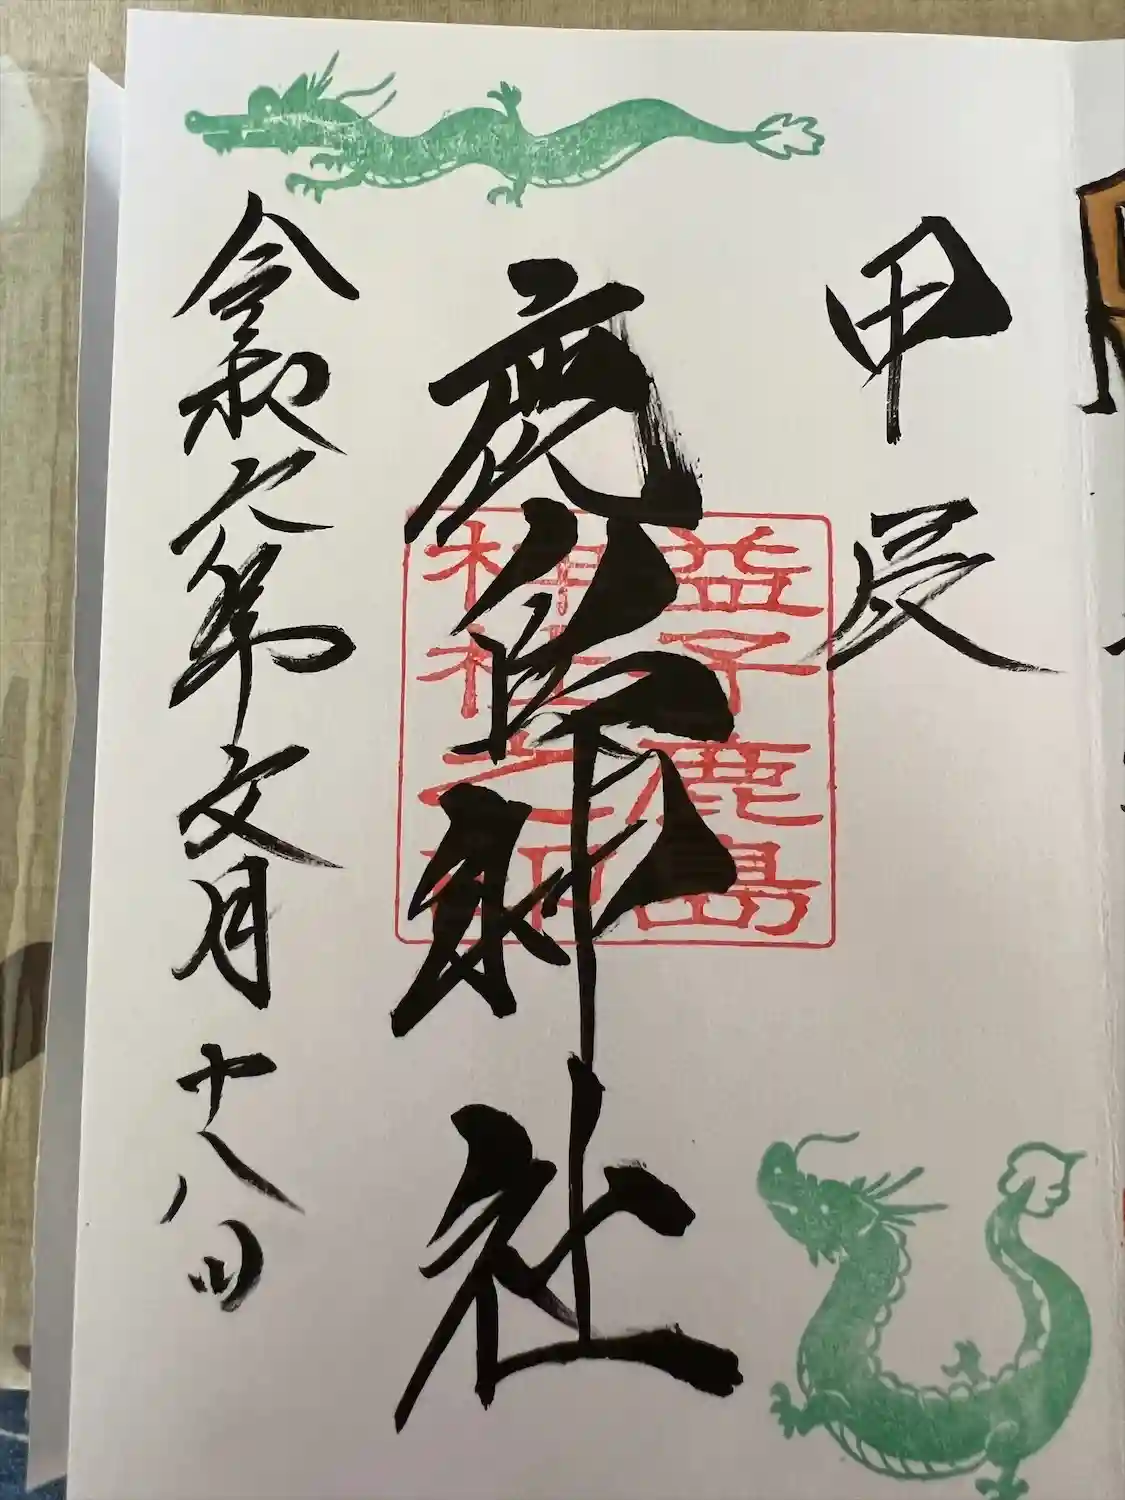 甲辰
鹿島神社
令和六年文月十八日
益子鹿島
神社之印